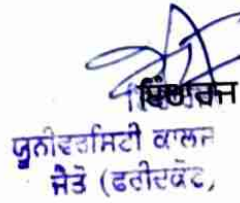 ਪ੍ਰਿੰਸੀਪਲ
ਯੂਨੀਵਰਸਿਟੀ ਕਾਲਜ
ਜੈਤੋ (ਫਰੀਦਕੋਟ)